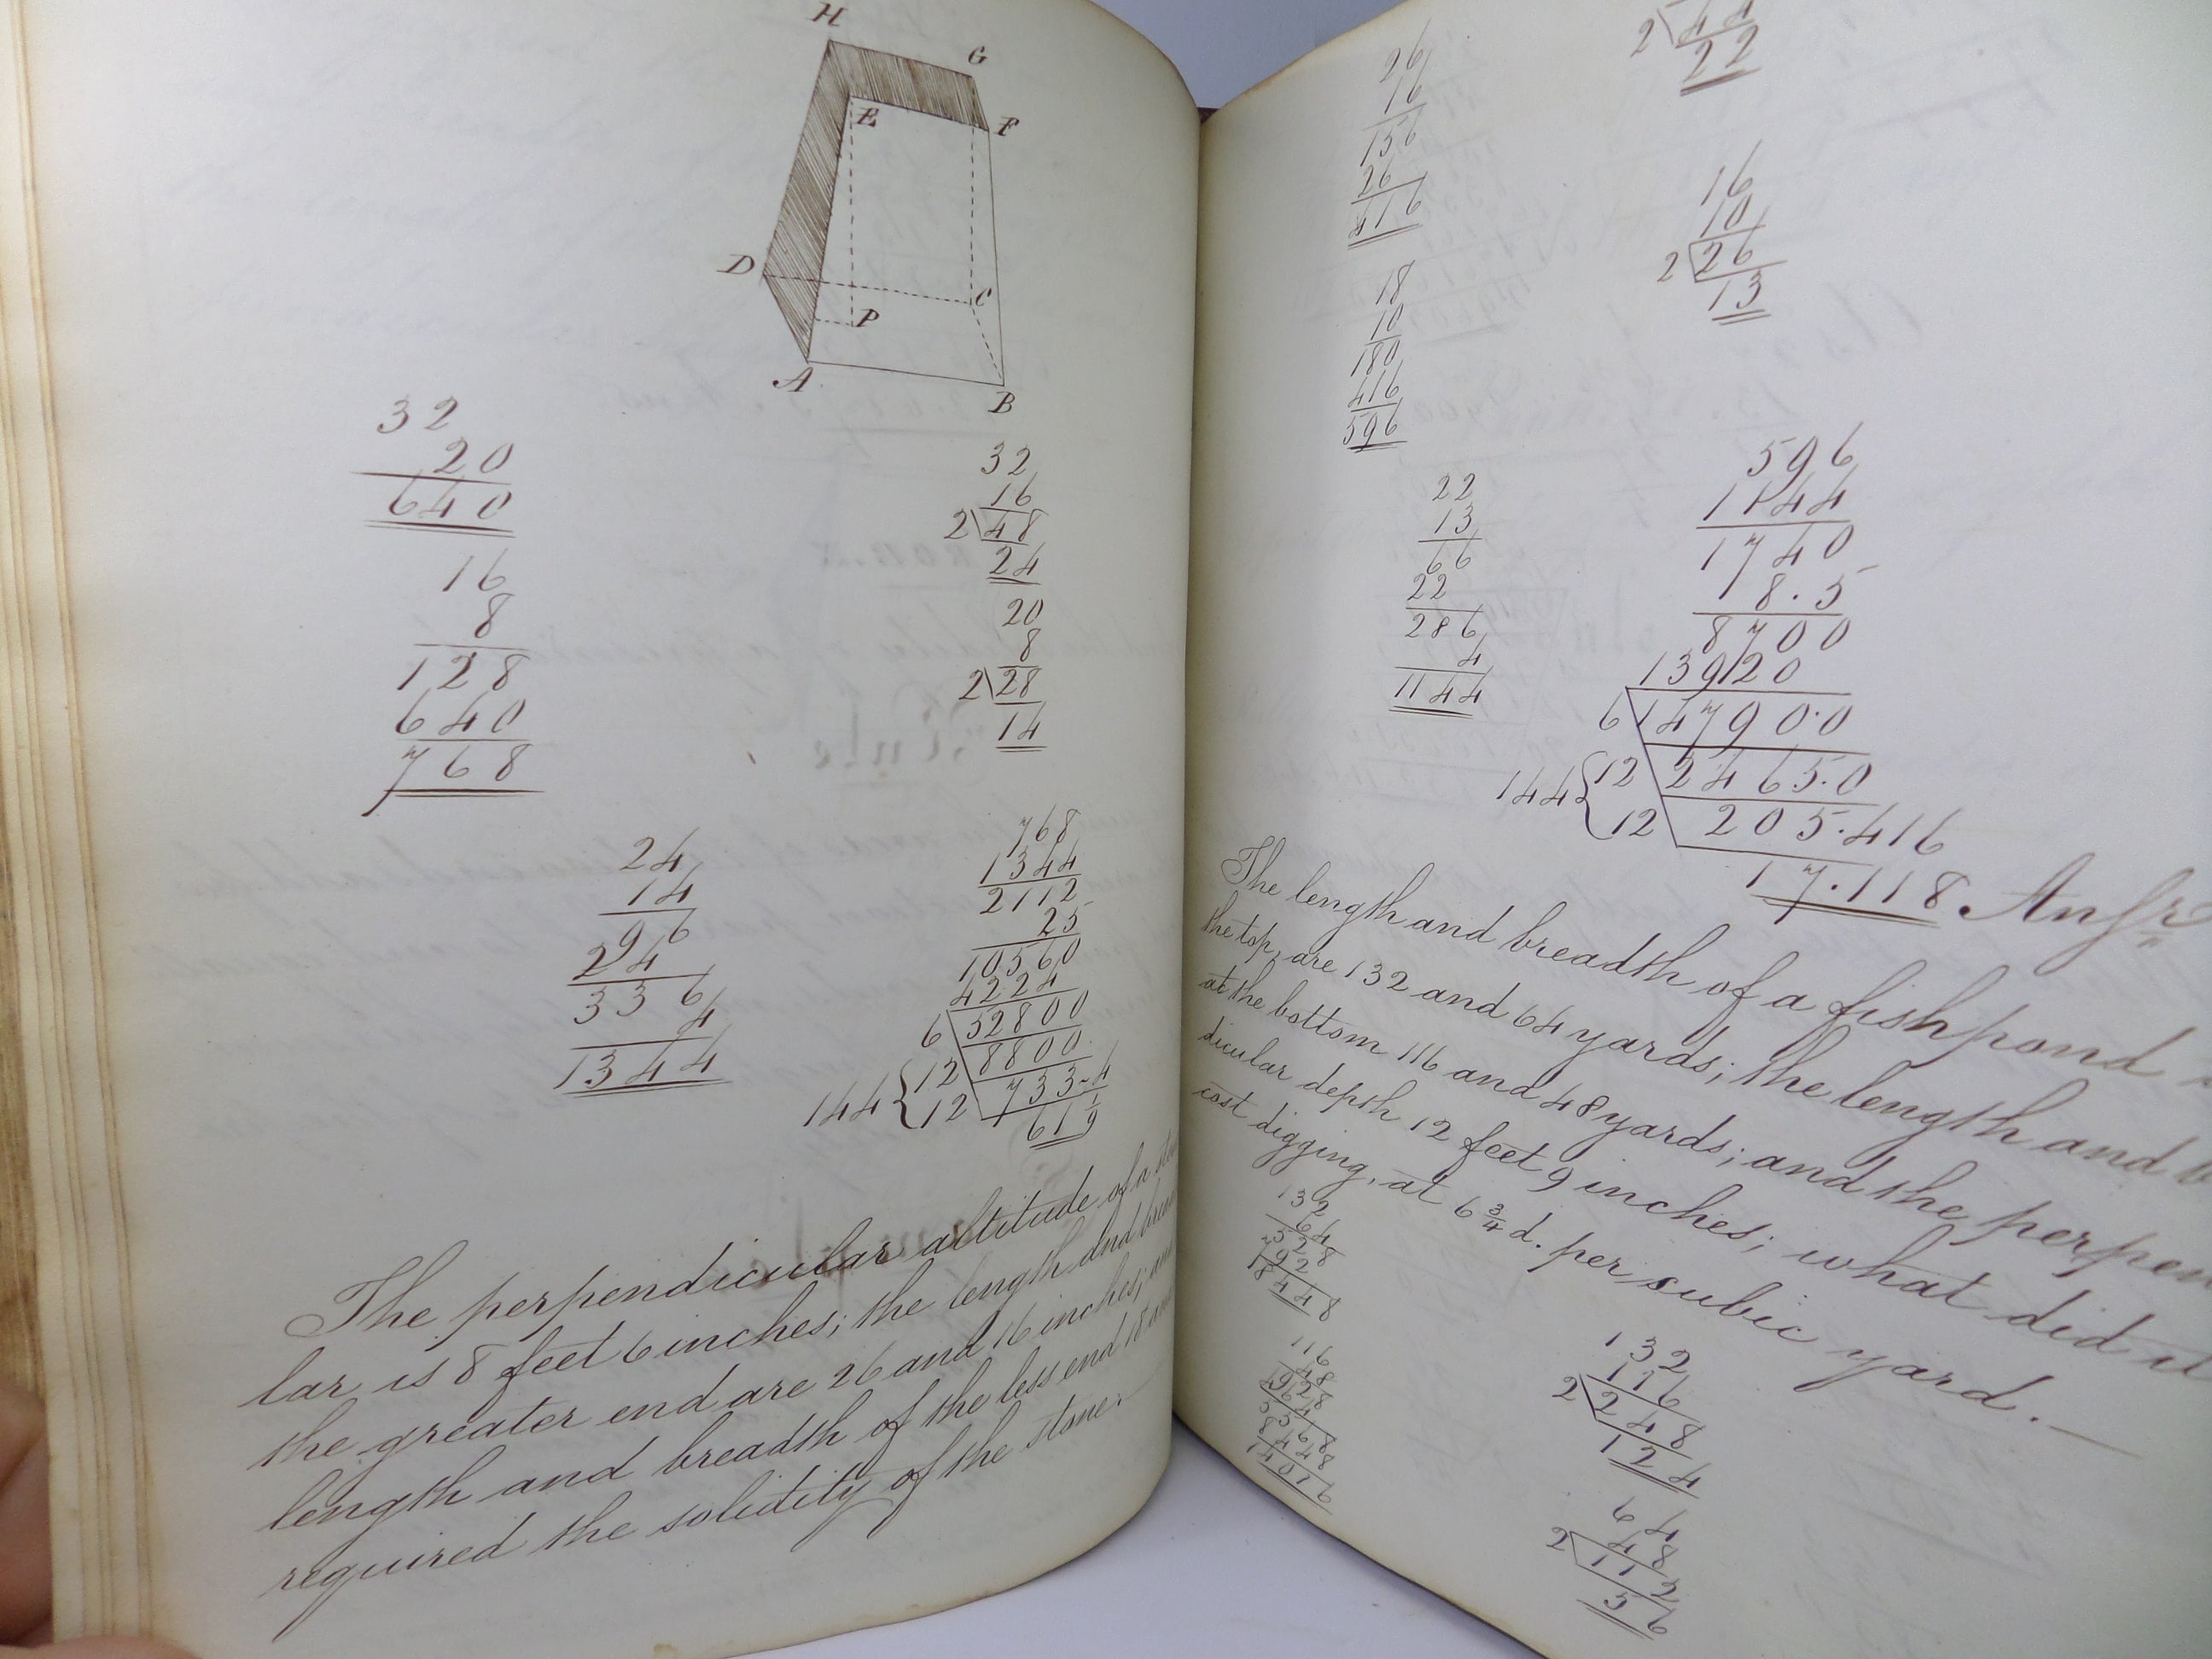 H
G
E
F
D
C
P
A
B
32
20
640
16
8
128
640
768
32
16
2 48
24
20
8
2 28
14
24
14
96
24
336
4
1344
768
1344
2112
25
10560
4224
6 52800
144 { 12 8800
12 733-4
61 1/9
The perpendicular altitude of a
lar is 8 feet 6 inches; the length and
the greater end are 26 and 16 inches;
length and breadth of the less end 18
required the solidity of the stone.
26
16
156
26
416
18
10
180
416
596
22
13
66
22
286
4
1144
2 44
22
16
10
2 26
13
596
1144
1740
8.5
8700
13920
6 14790.0
144 { 12 2465.0
12 205.416
17.118. Ansr
The length and breadth of a fishpond
the top, are 132 and 64 yards; the length and
at the bottom 116 and 48 yards; and the perpen
dicular depth 12 feet 9 inches; what did it
cost digging, at 6 3/4 d. per cubic yard.
132
64
528
792
8448
116
48
928
5568
8448
132
116
2 248
124
64
48
2 112
56